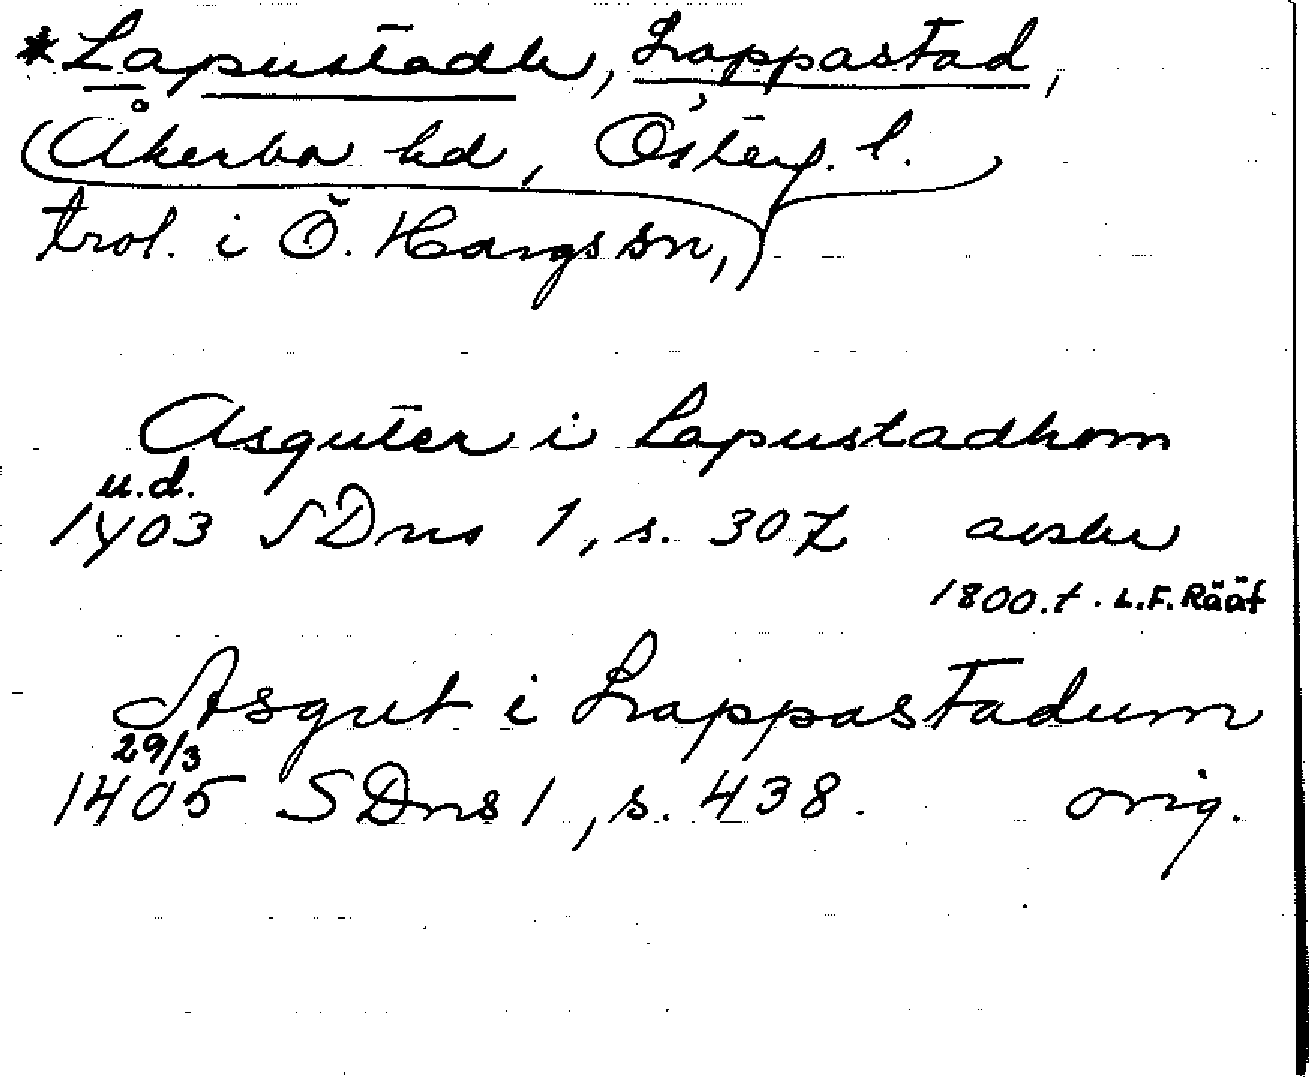 *Lapustadh, Lappastad,
(Åkerbo hd, Österg. l.
trol. i Ö. Hargs sn,)
Asguter i Lapustadhom
u.d.
1403 SDns 1, s. 307 avskr
1800.t. L.F. Rääf
Asgut i Lappastadum
29/3
1405 SDns 1, s. 438. orig.